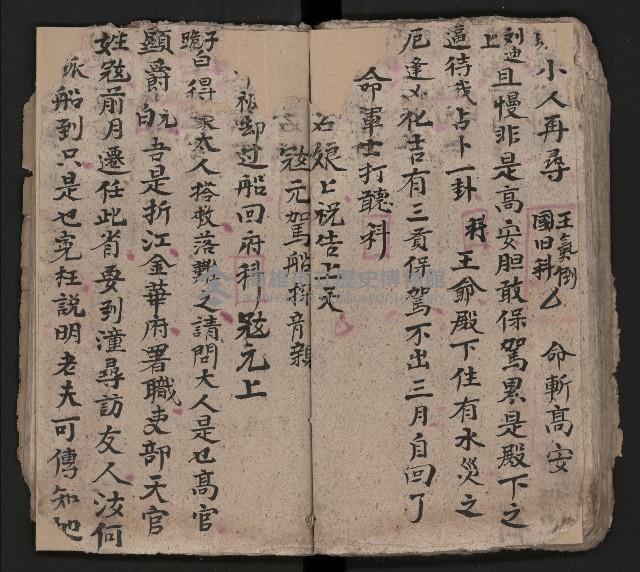 小人再尋 王氣倒 國旧科 命斬高安
刘迪上 且慢非是高安胆敢保駕累是殿下之
逼待我占卜一卦 科 王爺殿下住有水災之
厄逢凶化吉有三貢保駕不出三月自回了
命軍士打聽科
娘上祝告上天
元駕船探音親
却过船回府科 元上
子跪白得 大人搭救落難之請問大人是乜高官
顯爵 元白 吾是折江金華府署職吏部天官
姓 前月遷任此省要到潼尋訪友人汝何
派船到只是乜克枉説明老夫可傳知地